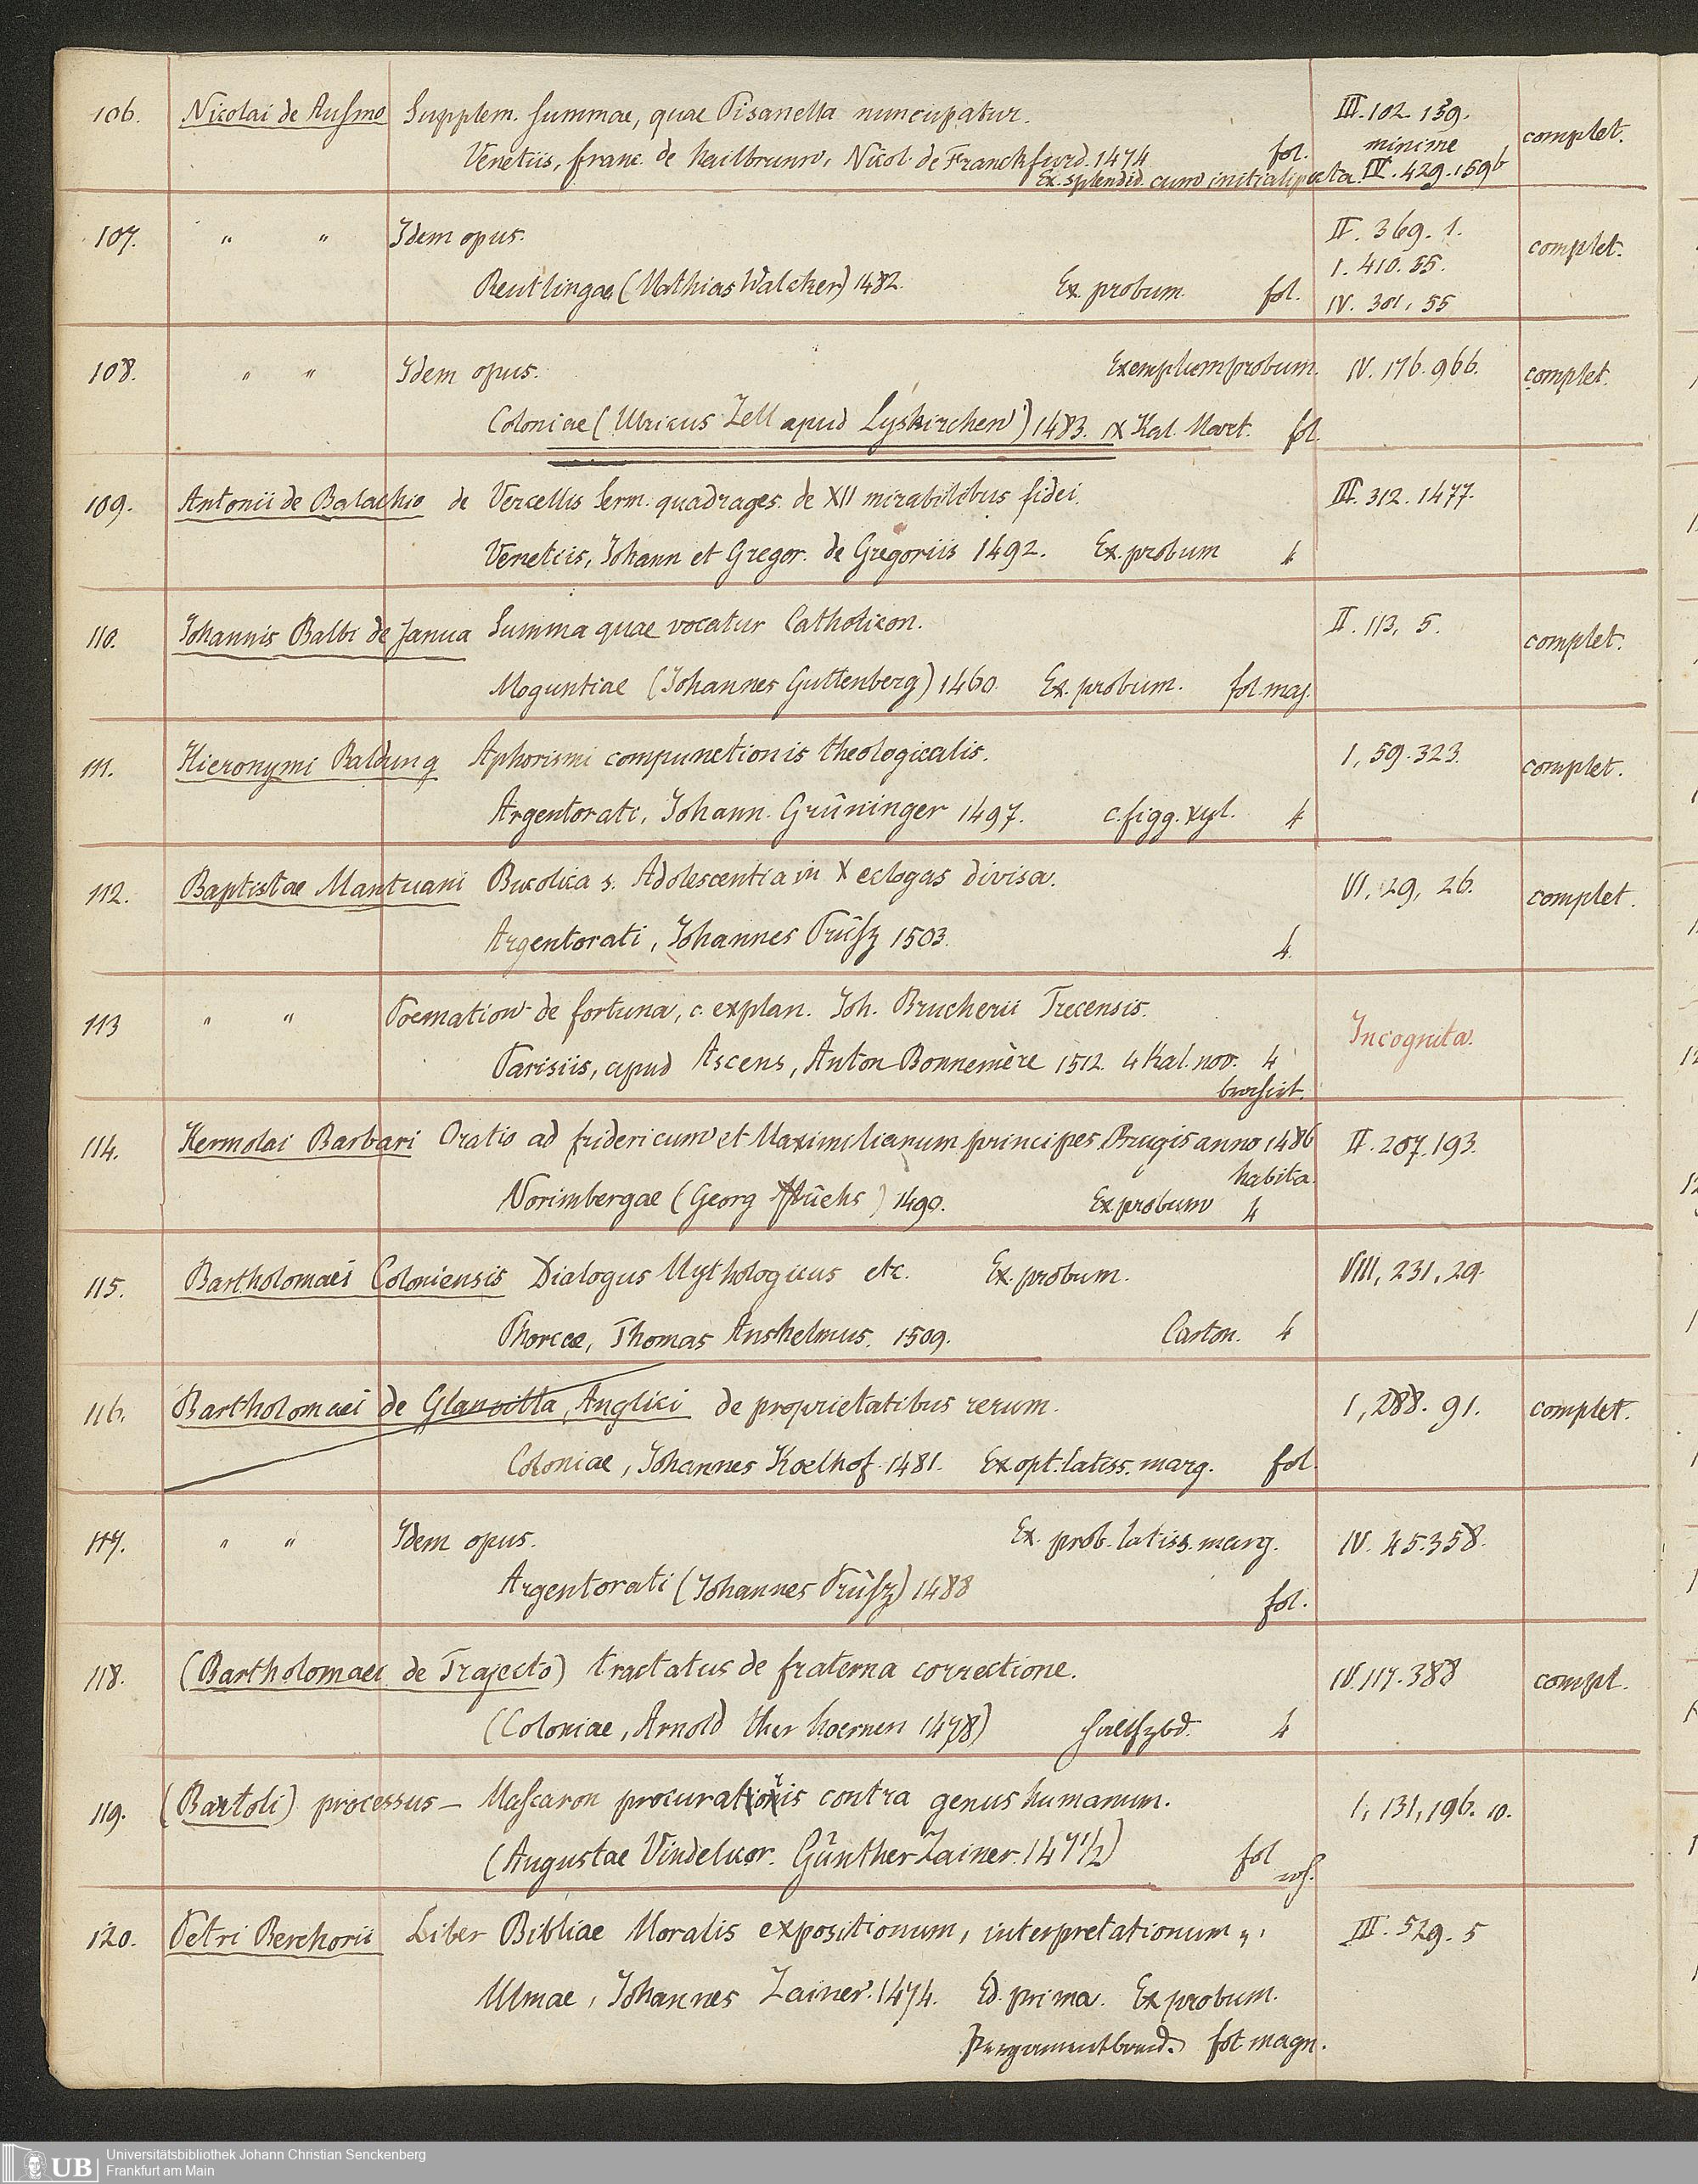 106. Nicolai de Ausmo Supplem. summae, quae Pisanella nuncupatur. III. 102. 139. complet.
Venetiis, franc. de Hailbrunn, Nicol. de Franckfurd. 1474 fol. minime
Ex. splendid. cum initial. picta. IV. 429. 159b
107. " " Idem opus. II. 369. 1. complet.
Reutlingae (Mathias Walcker) 1482. Ex. probum. fol. I. 410. 55.
IV. 301. 55
108. " " Idem opus. Exemplum probum. IV. 176. 966. complet.
Coloniae (Ulricus Zell apud Lyskirchen) 1483. IX Kal. Mart. fol.
109. Antonii de Balachio de Vercellis Serm. quadrages. de XII mirabilibus fidei. III. 312. 1477.
Venetiis, Johann et Gregor. de Gregoriis 1492. Ex. probum 4
110. Johannis Balbi de Janua Summa quae vocatur Catholicon. II. 113, 5. complet.
Moguntiae (Johannes Guttenberg) 1460. Ex. probum. fol. maj.
111. Hieronymi Baldung Aphorismi compunctionis theologicalis. I, 59. 323. complet.
Argentorati, Johann. Grüninger 1497. c. figg. xyl. 4
112. Baptistae Mantuani Bucolica s. Adolescentia in X eclogas divisa. VI, 29, 26. complet.
Argentorati, Johannes Prüsz 1503. 4.
113 " " Poemation de fortuna, c. explan. Joh. Brucherii Trecensis. Incognita.
Parisiis, apud Ascens, Anton Bonnemère 1512. 4 Kal. nov. 4
broschirt.
114. Hermolai Barbari Oratio ad fridericum et Maximilianum principes Brugis anno 1486 II. 207. 193.
habita.
Norimbergae (Georg Stüchs) 1490. Ex probum 4
115. Bartholomaei Coloniensis Dialogus Mythologicus etc. Ex. probum. VIII, 231, 29.
Phorcae, Thomas Anshelmus. 1509. Carton. 4
116. Bartholomaei de Glanvilla, Anglici de proprietatibus rerum. I, 288. 91. complet.
Coloniae, Johannes Koelhof 1481. Ex opt. latiss. marg. fol.
117. " " Idem opus. Ex. prob. latiss. marg. IV. 45. 358.
Argentorati (Johannes Prüsz) 1488 fol.
118. (Bartholomaei de Trajecto) tractatus de fraterna correctione. IV. 117. 388 compl.
(Coloniae, Arnold ther hoernen 1478) 4
119. (Bartoli) processus – Mascaron procuratoris contra genus humanum. I, 131, 196. 10.
(Augustae Vindelicor. Günther Zainer. 1471/2) fol
120. Petri Berchorii Liber Bibliae Moralis expositionum, interpretationum " III. 529. 5
Ulmae, Johannes Zainer. 1474. Ed. prima. Ex probum.
Pergamentband. fol. magn.
UB Universitätsbibliothek Johann Christian Senckenberg
Frankfurt am Main